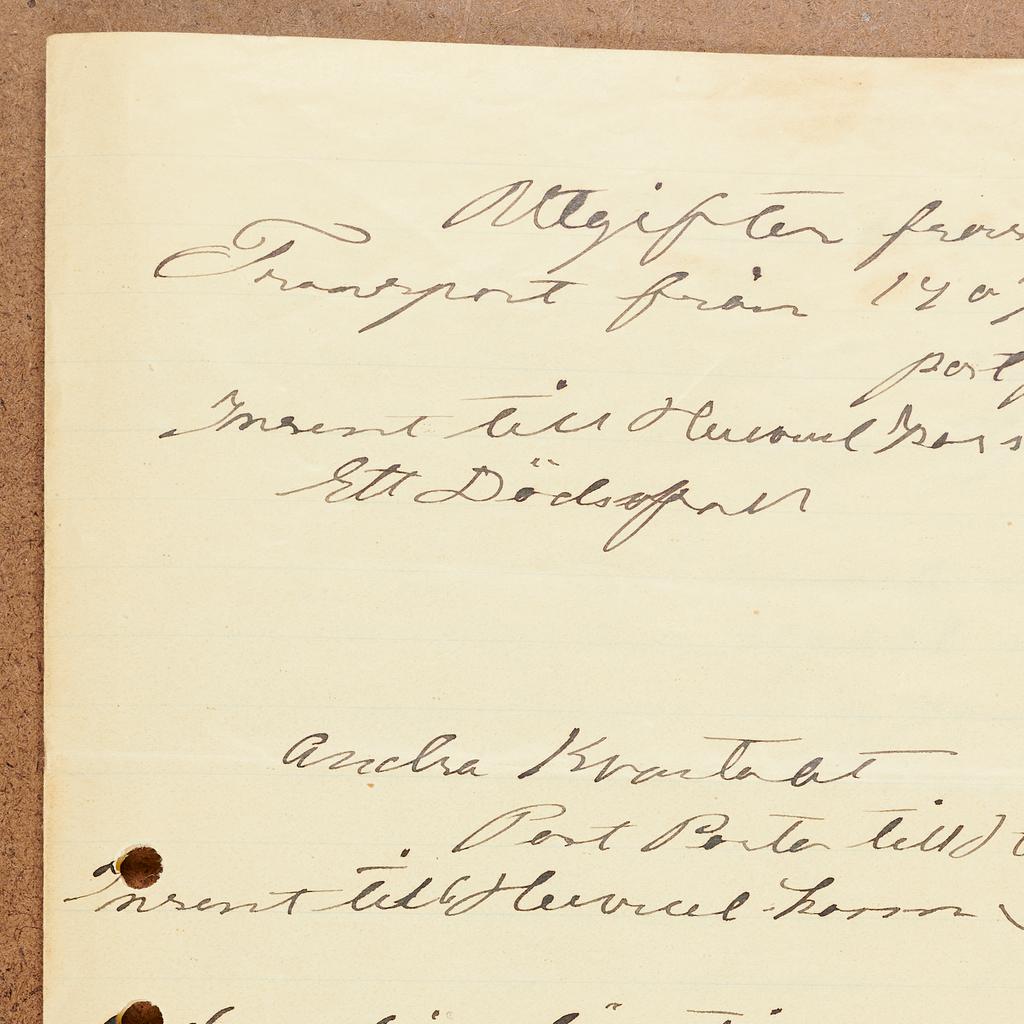 Utgifter från
Transport från 1907
port
Insent till Huvud kas
Ett Dödsfall
Andra Kvartalet
Port Porto till
Insent till Huvud kassan